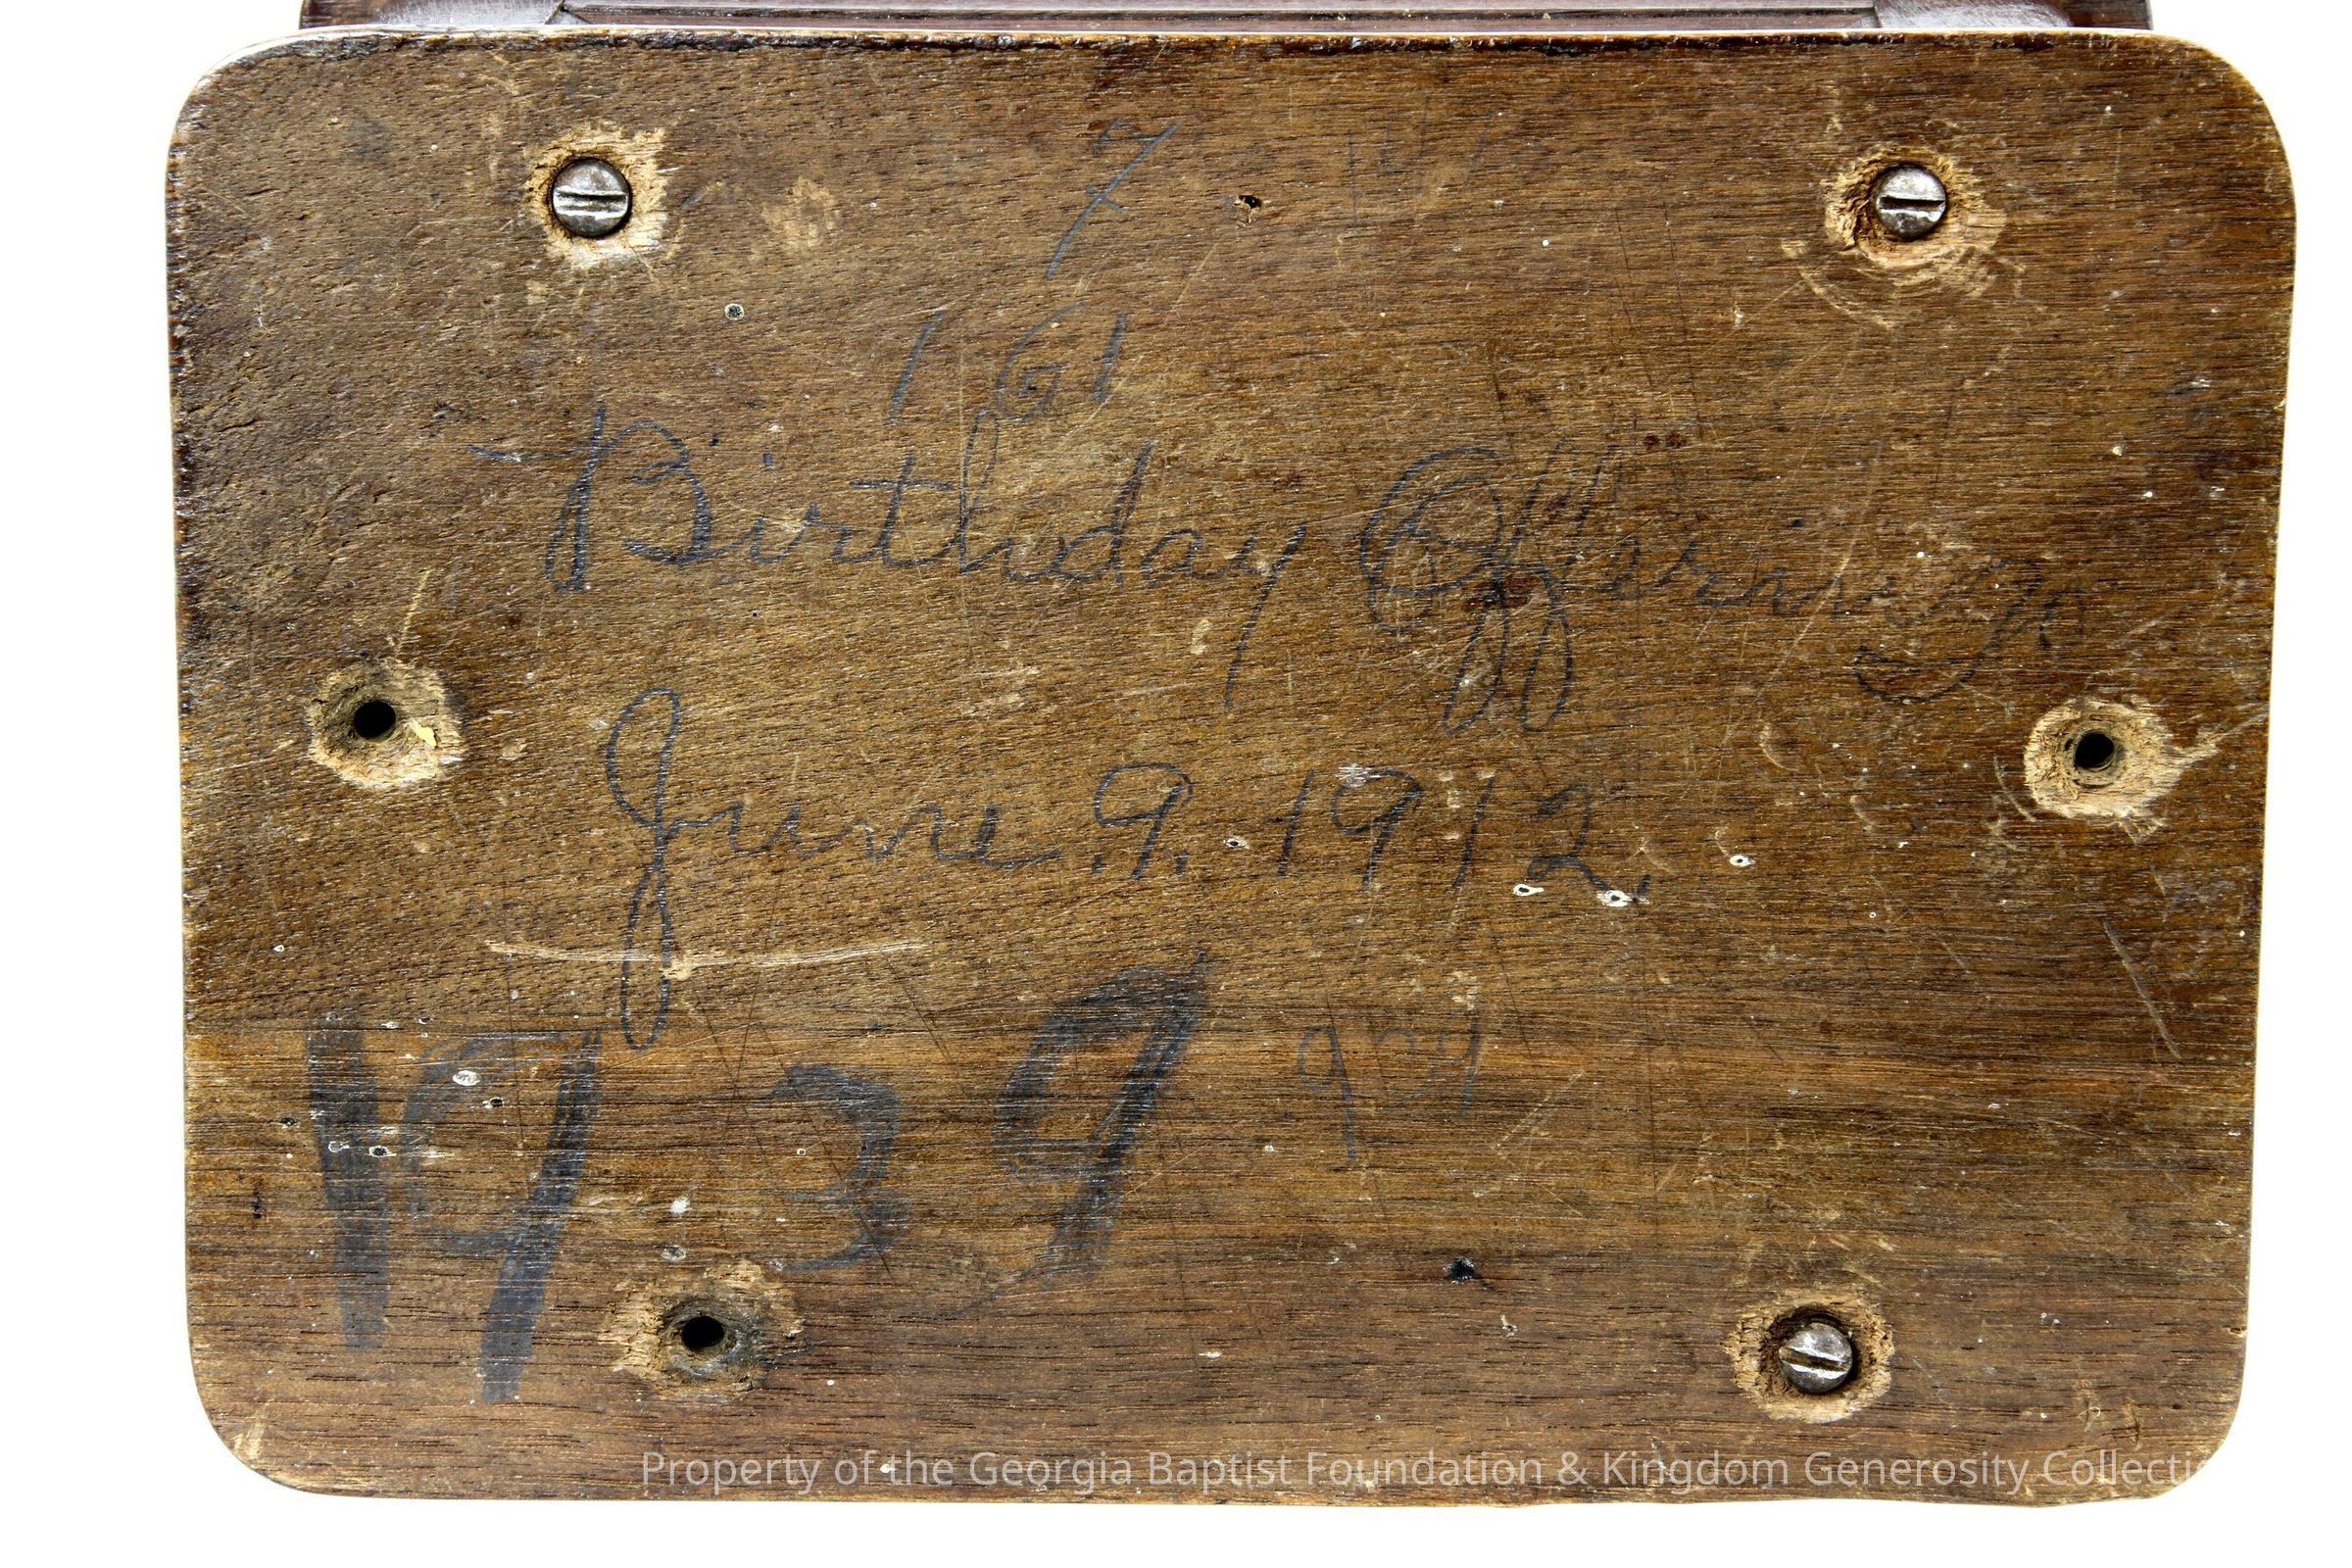 7
161
Birthday Offerings
June 9, 1912.
1939 939
Property of the Georgia Baptist Foundation & Kingdom Generosity Collecti